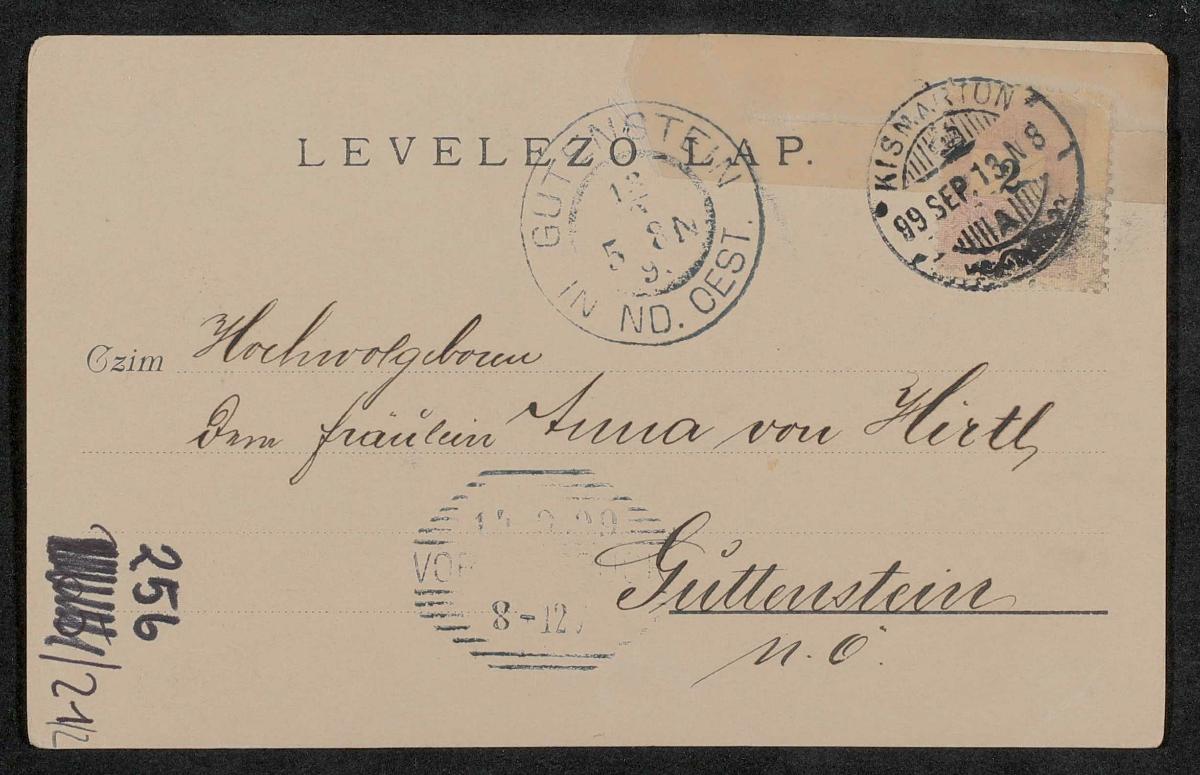 LEVELEZŐ LAP.
GUTENSTEIN
IN ND. OEST.
KISMARTON
99 SEP. 13. N 8
Czim Hochwolgeboren
Dem fräulein Anna von Hirtl
8-12
Guttenstein
N. Ö.
256